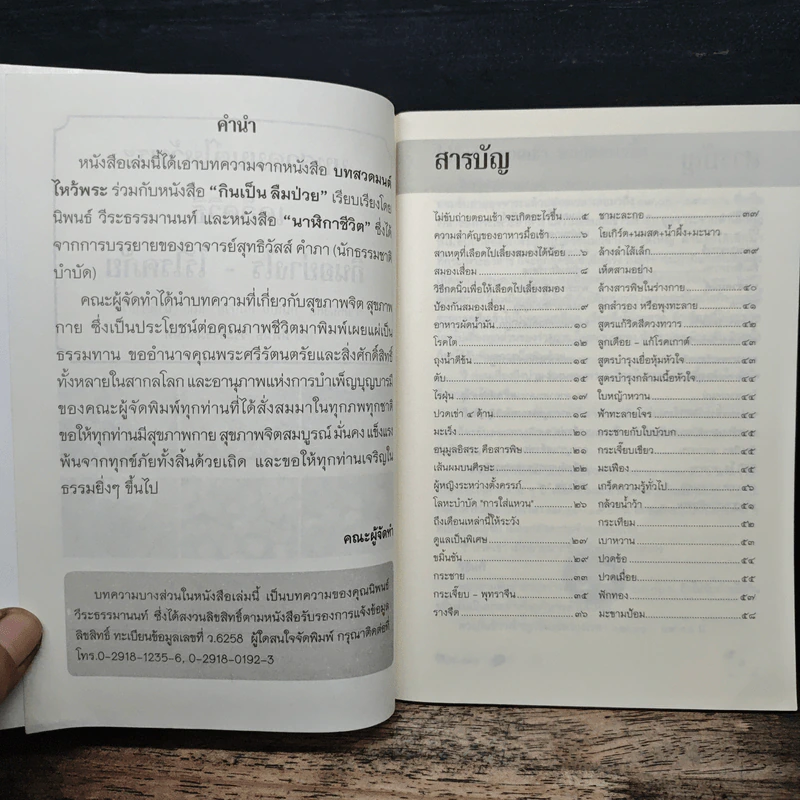 คำนำ
หนังสือเล่มนี้ได้เอาบทความจากหนังสือ บทสวดมนต์
ไหว้พระ ร่วมกับหนังสือ “กินเป็น ลืมป่วย” เรียบเรียงโดย
นิพนธ์ วีระธรรมานนท์ และหนังสือ “นาฬิกาชีวิต” ซึ่งได้
จากการบรรยายของอาจารย์สุทธิวัสส์ คำภา (นักธรรมชาติ
บำบัด)
คณะผู้จัดทำได้นำบทความที่เกี่ยวกับสุขภาพจิต สุขภาพ
กาย ซึ่งเป็นประโยชน์ต่อคุณภาพชีวิตมาพิมพ์เผยแผ่เป็น
ธรรมทาน ขออำนาจคุณพระศรีรัตนตรัยและสิ่งศักดิ์สิทธิ์
ทั้งหลายในสากลโลก และอานุภาพแห่งการบำเพ็ญบุญบารมี
ของคณะผู้จัดพิมพ์ทุกท่านที่ได้สั่งสมมาในทุกภพทุกชาติ
ขอให้ทุกท่านมีสุขภาพกาย สุขภาพจิตสมบูรณ์ มั่นคง แข็งแรง
พ้นจากทุกข์ภัยทั้งสิ้นด้วยเถิด และขอให้ทุกท่านเจริญใน
ธรรมยิ่งๆ ขึ้นไป
คณะผู้จัดทำ
บทความบางส่วนในหนังสือเล่มนี้ เป็นบทความของคุณนิพนธ์
วีระธรรมานนท์ ซึ่งได้สงวนลิขสิทธิ์ตามหนังสือรับรองการแจ้งข้อมูล
ลิขสิทธิ์ ทะเบียนข้อมูลเลขที่ ว.6258 ผู้ใดสนใจจัดพิมพ์ กรุณาติดต่อที่
โทร.0-2918-1235-6, 0-2918-0192-3
สารบัญ
ไม่ขับถ่ายตอนเช้า จะเกิดอะไรขึ้น ๕
ความสำคัญของอาหารมื้อเช้า ๖
สาเหตุที่เลือดไปเลี้ยงสมองได้น้อย ๖
สมองเสื่อม ๘
วิธีกดนิ้วเพื่อให้เลือดไปเลี้ยงสมอง
ป้องกันสมองเสื่อม ๙
อาหารผัดน้ำมัน ๑๐
โรคไต ๑๒
ถุงน้ำดีข้น ๑๔
ตับ ๑๕
ไรฝุ่น ๑๗
ปวดเข่า ๔ ด้าน ๑๘
มะเร็ง ๒๐
อนุมูลอิสระ คือสารพิษ ๒๑
เส้นผมบนศีรษะ ๒๒
ผู้หญิงระหว่างตั้งครรภ์ ๒๔
โลหะบำบัด "การใส่แหวน" ๒๖
ถึงเดือนเหล่านี้ให้ระวัง
ดูแลเป็นพิเศษ ๒๗
ขมิ้นชัน ๒๙
กระชาย ๓๓
กระเจี๊ยบ - พุทราจีน ๓๕
รางจืด ๓๖
ชามะละกอ ๓๗
โยเกิร์ต+นมสด+น้ำผึ้ง+มะนาว
ล้างลำไส้เล็ก ๓๙
เห็ดสามอย่าง
ล้างสารพิษในร่างกาย ๔๐
ลูกสำรอง หรือพุงทะลาย ๔๑
สูตรแก้ริดสีดวงทวาร ๔๒
ลูกเดือย - แก้โรคเกาต์ ๔๓
สูตรบำรุงเยื่อหุ้มหัวใจ ๔๓
สูตรบำรุงกล้ามเนื้อหัวใจ ๔๔
ใบหญ้าหวาน ๔๔
ฟ้าทะลายโจร ๔๔
กระชายกับใบบัวบก ๔๕
กระเจี๊ยบเขียว ๔๕
มะเฟือง ๔๕
เกร็ดความรู้ทั่วไป ๔๖
กล้วยน้ำว้า ๕๑
กระเทียม ๕๒
เบาหวาน ๕๓
ปวดข้อ ๕๔
ปวดเมื่อย ๕๕
ฟักทอง ๕๗
มะขามป้อม ๕๘